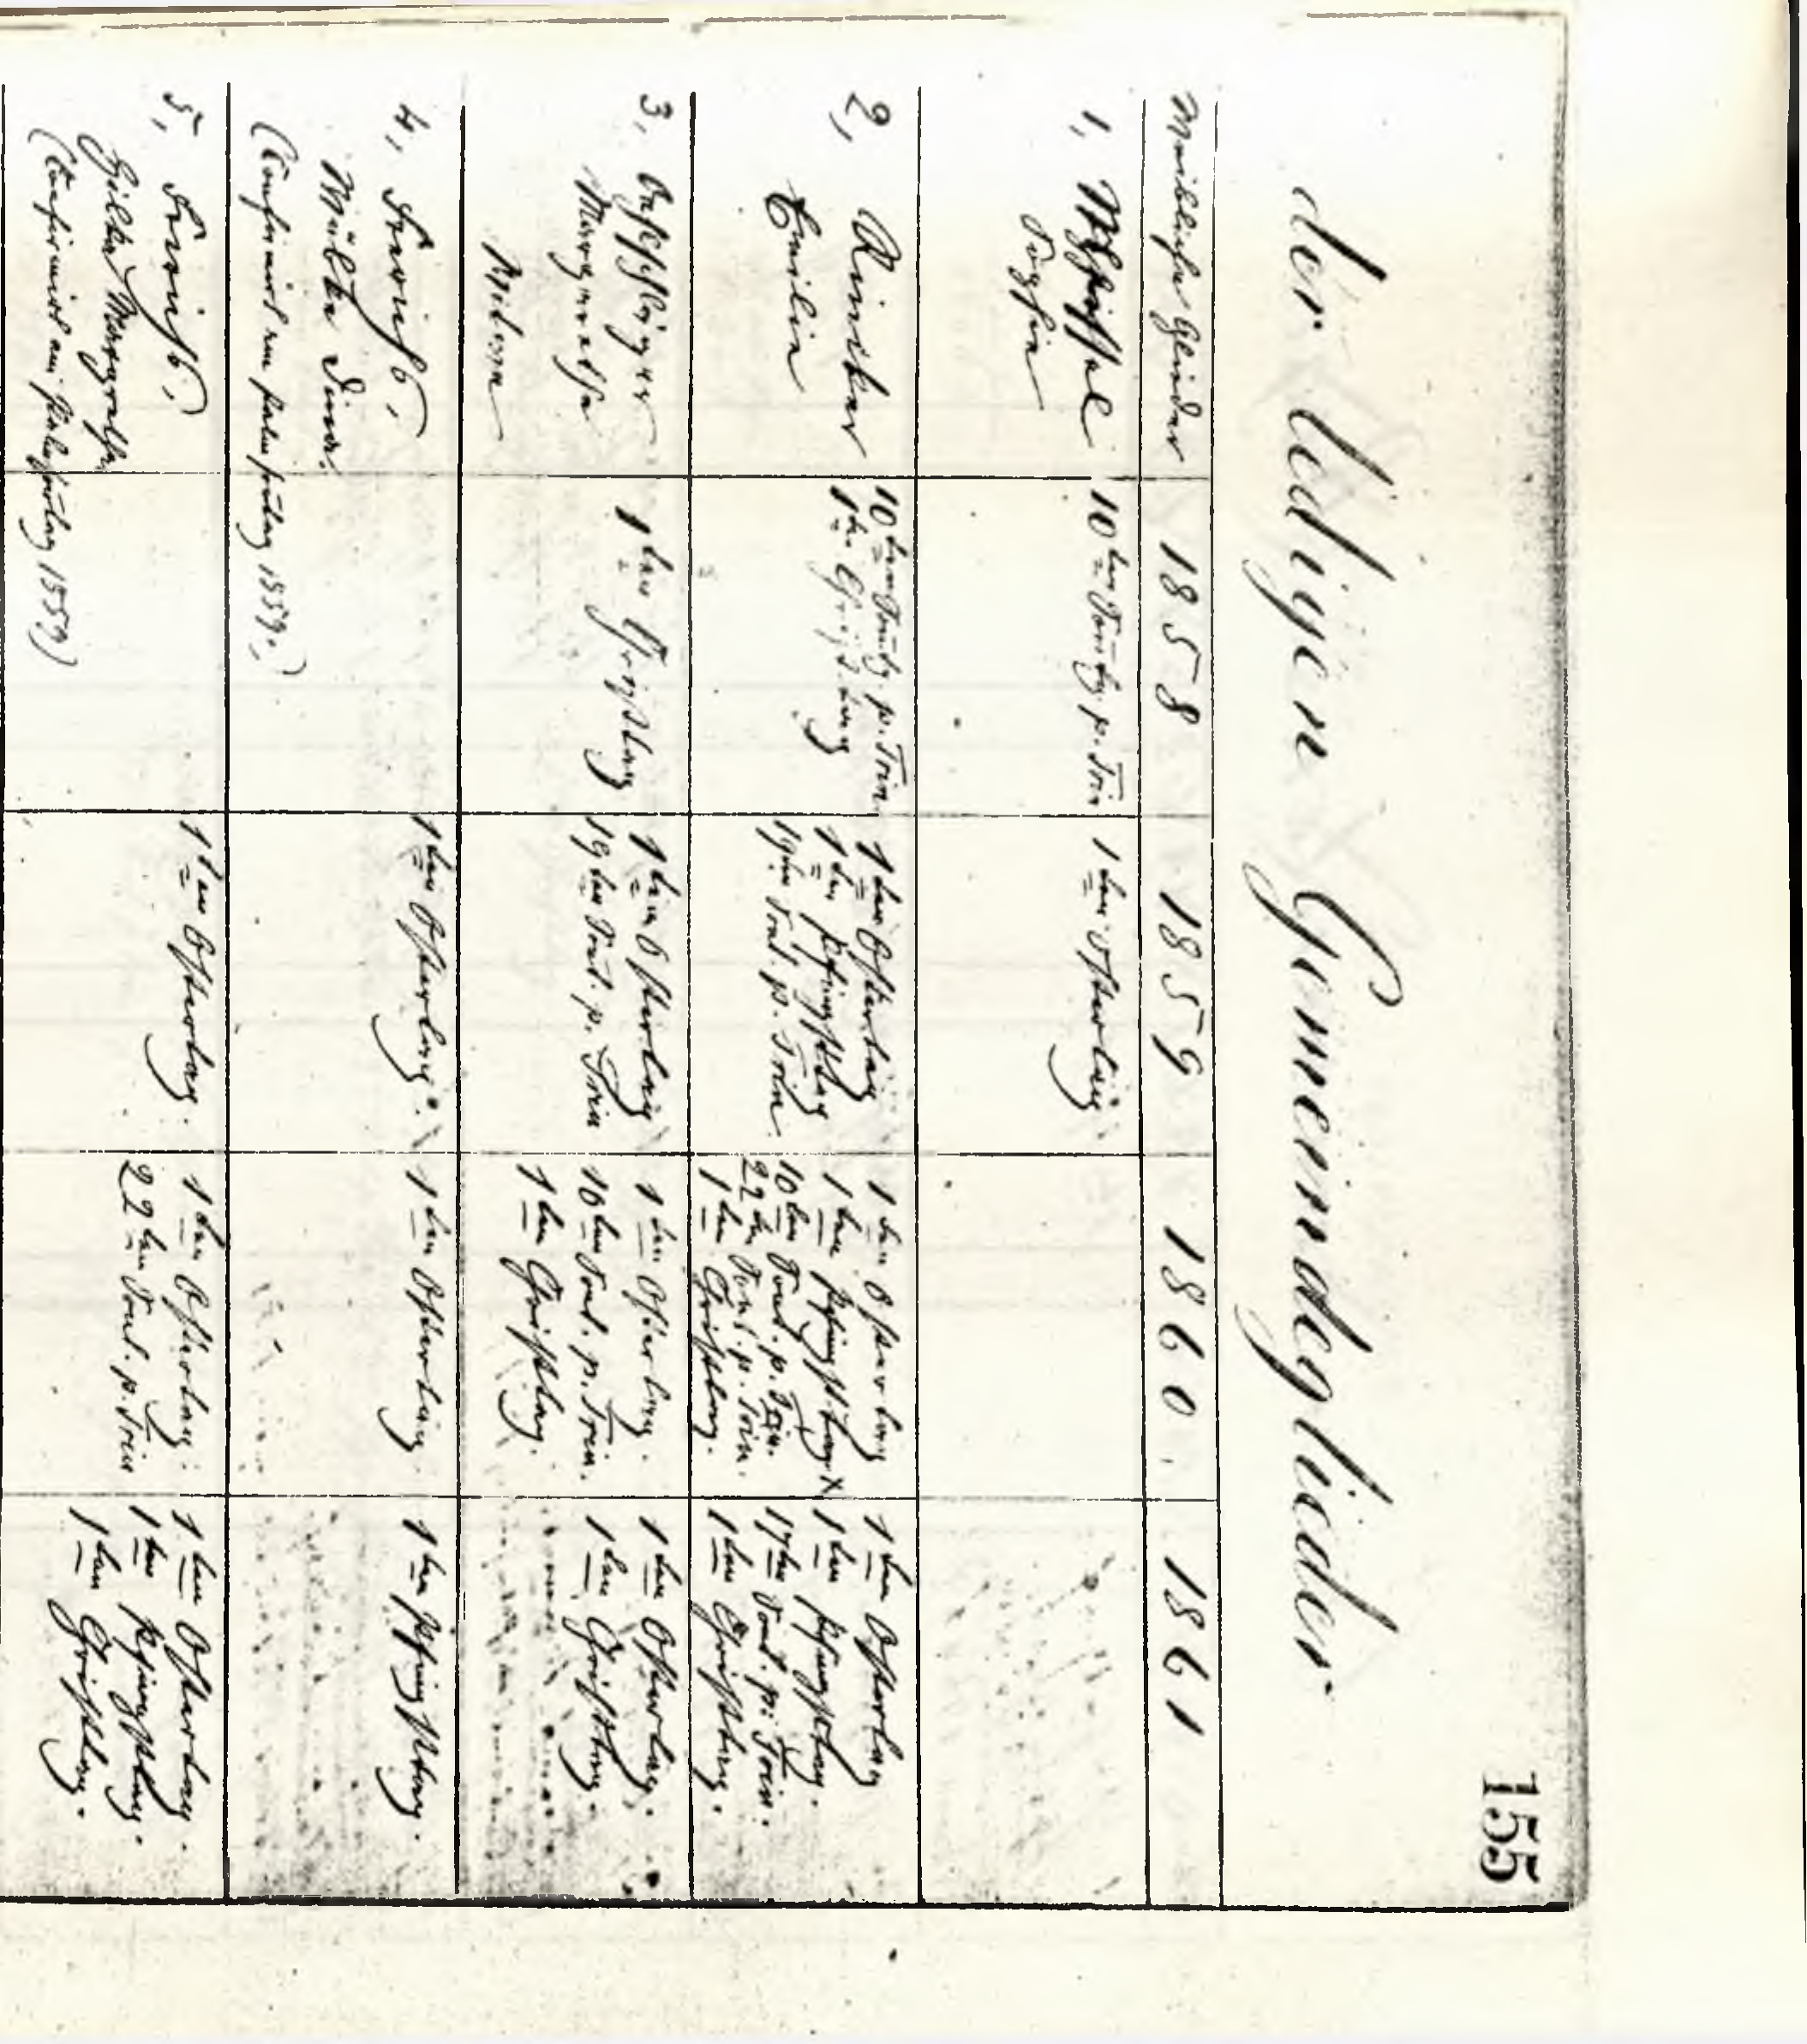 155
der ledigen Gemeindeglieder
Weibliche Glieder 1858 1859 1860. 1861
1,
Sophia
10ten Sontg p. Trin
1ten Ostertag.
2, Riniker
Emilia
10ten Sontg. p. Trin.
1ten Christtag
1ten Ostertag
1ten Pfingsttag
19ten Sont. p. Trin.
1ten Ostertag
1ten Pfingsttag X
10ten Sont. p. Trin.
22ten Sont. p. Trin.
1ten Christtag.
1ten Ostertag
1ten Pfingsttag.
17ten Sont. p. Trin.
1ten Christtag.
3, Oschläger
Margaretha
1ten Christtag
1ten Ostertag
19ten Sont. p. Trin
1ten Ostertag.
10ten Sont. p. Trin.
1ten Christtag.
1ten Ostertag.
1ten Christtag.
4,
(Confirmirt am Palmsontag 1859.)
1ten Ostertag.
1ten Ostertag.
1ten Pfingsttag.
5,
Margaretha
(Confirmirt am Palmsontag 1859)
1ten Ostertag.
1ten Ostertag.
22ten Sont. p. Trin
1ten Ostertag.
1ten Pfingsttag.
1ten Christtag.